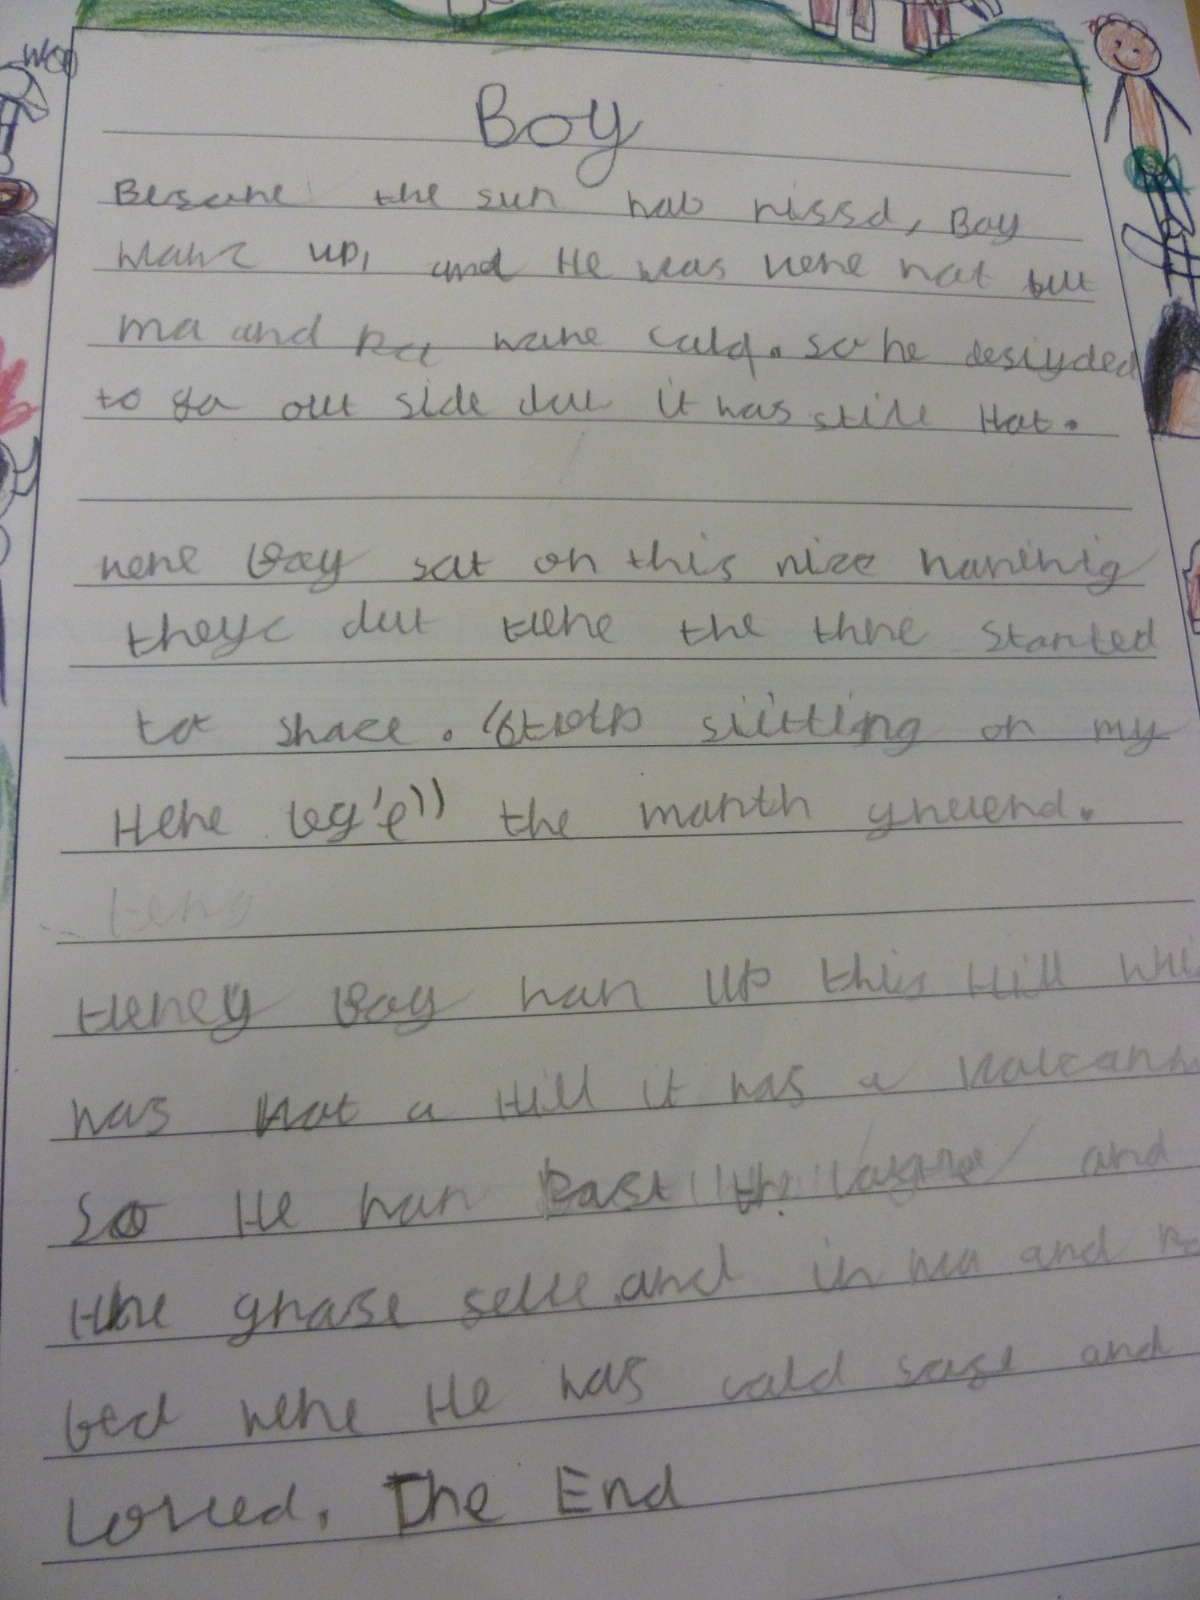 Woo
Boy
Besane the sun had rissd, Boy
wake up, and He was vere hot but
ma and Pa ware cald. so he desiyded
to go out side but it was still Hot.
Here Boy sat on this nice
they but there the thre started
to shace. "Stop siitting on my
Here leg's" the manth grewend.
Boy ran up this Hill whi
was Not a Hill it was a Valcann
So He ran Past the and
the grase selle and in ma and Pa
bed were He was cald sase and
Loved. The End